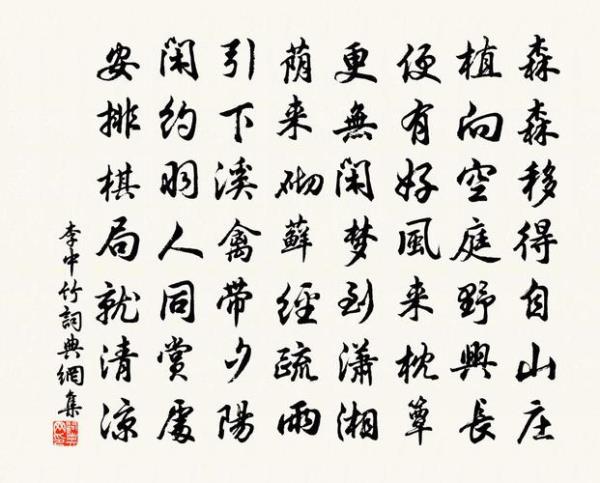 森森移得自山庄
植向空庭野興長
便有好風来枕簟
更無闲梦到瀟湘
荫来砌蘚經疏雨
引下溪禽帶夕陽
闲約羽人同賞處
安排棋局就清凉
李中竹詞典網集